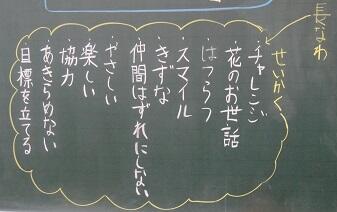 長なわ
せいかく
・チャレンジ
・花のお世話
・はつらつ
・スマイル
・きずな
・仲間はずれにしない
・やさしい
・楽しい
・協力
・あきらめない
・目標を立てる